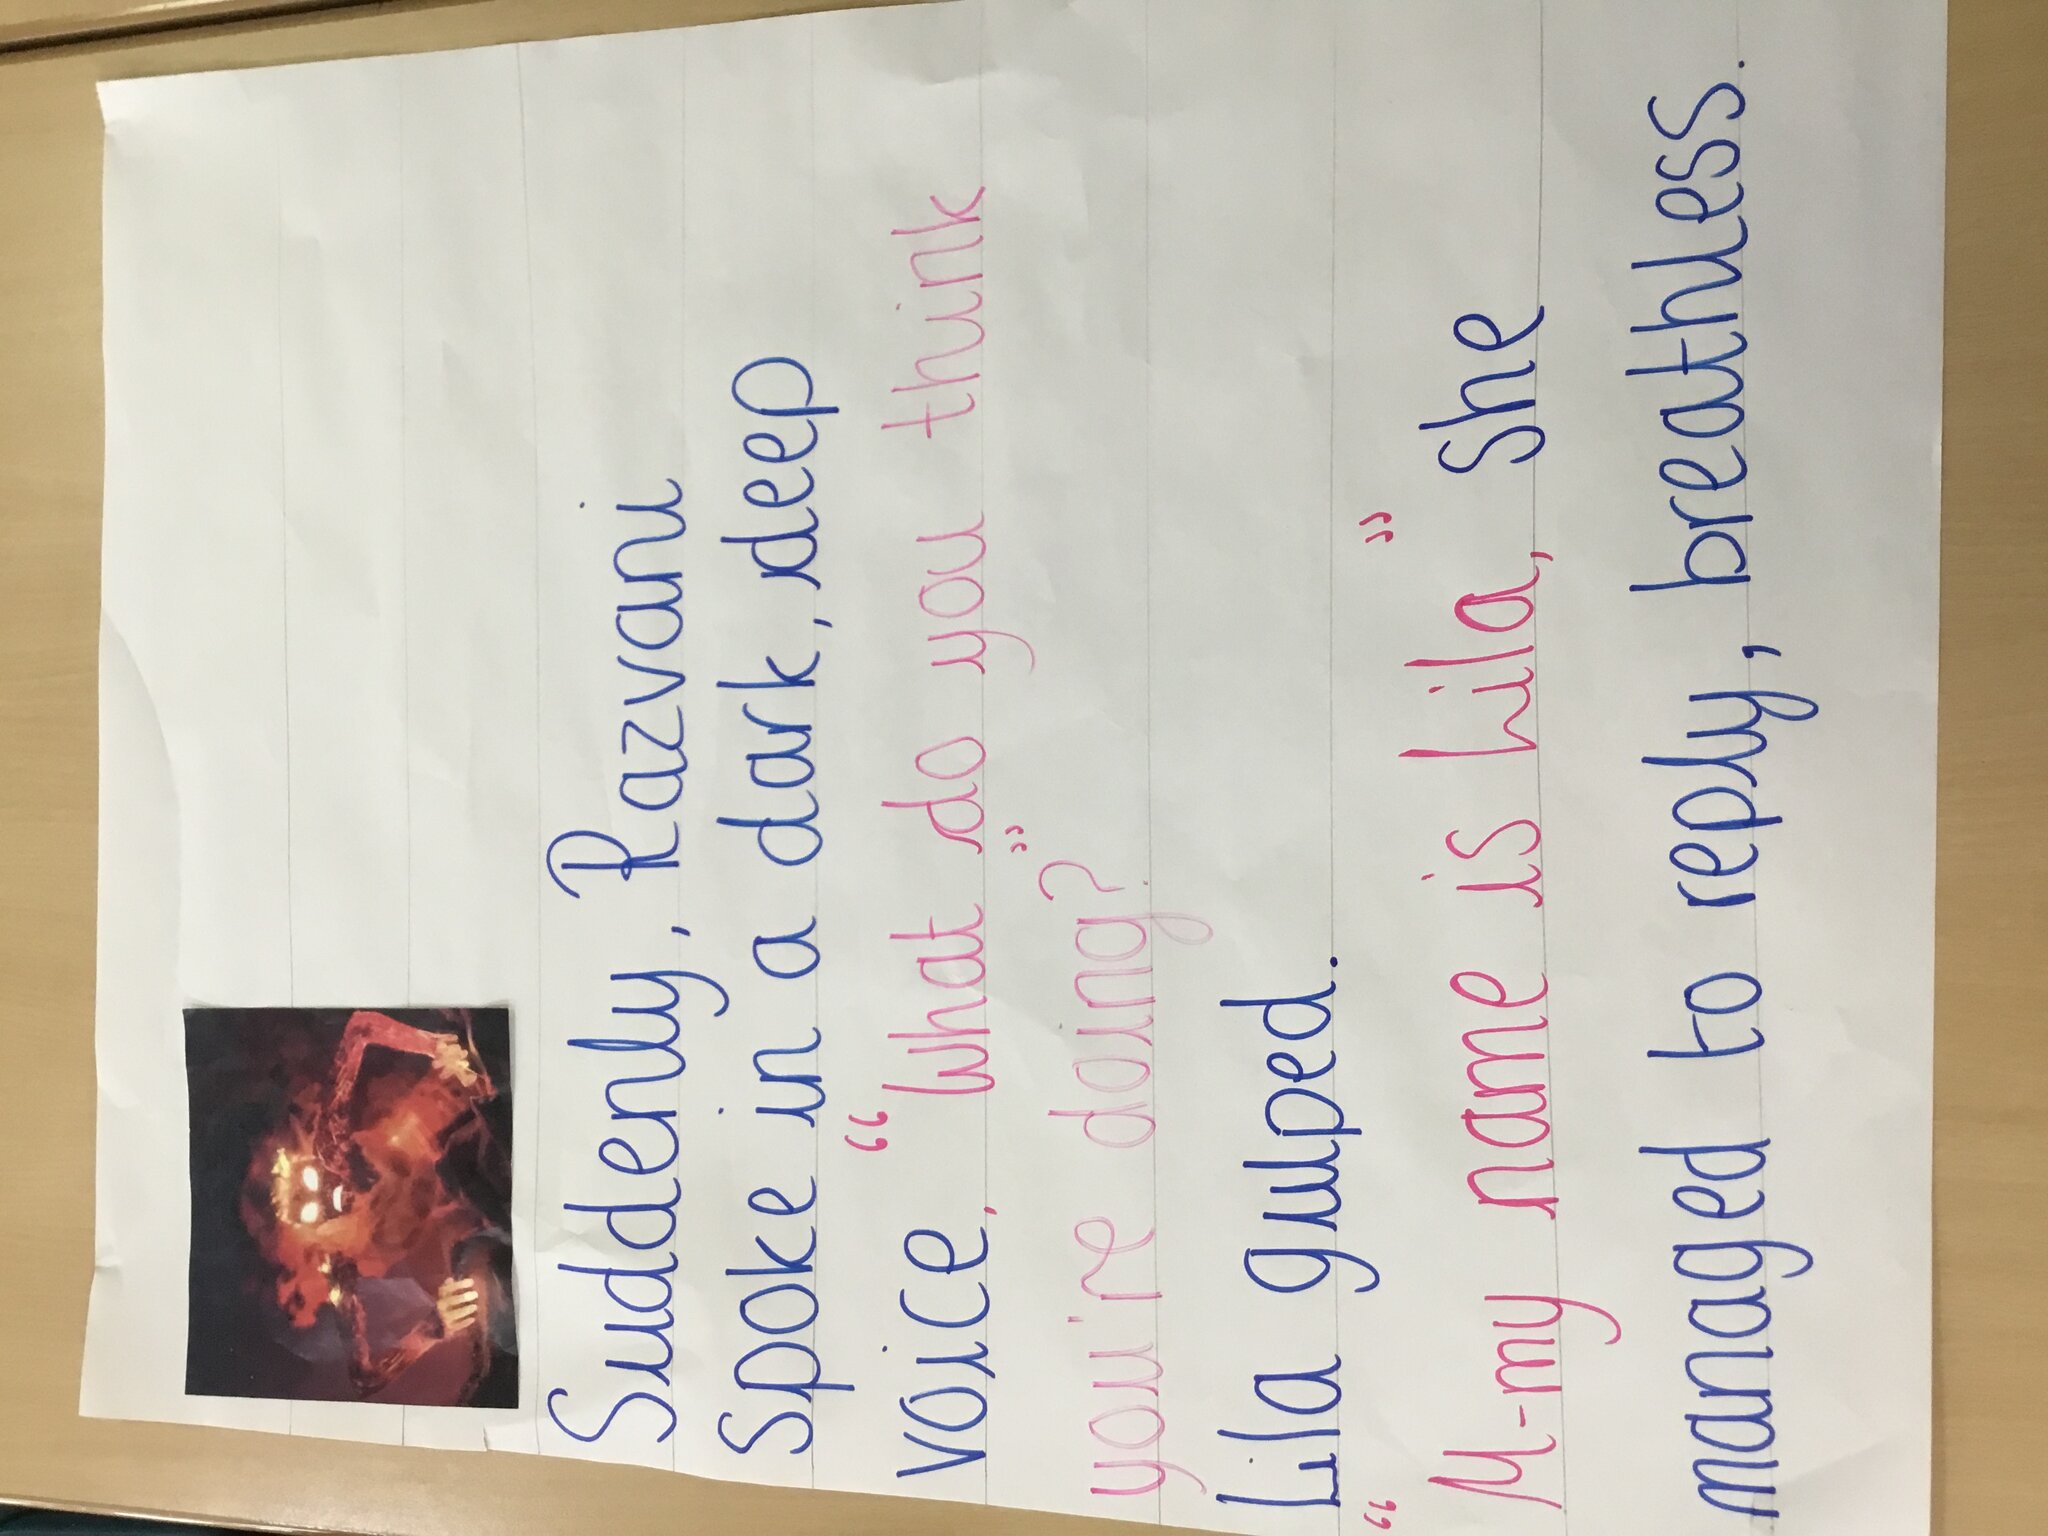 Suddenly, Razvani
Spoke in a dark, deep
voice, “What do you think
you're doing?”
Lila gulped.
“M-my name is Lila,” she
managed to reply, breathless.